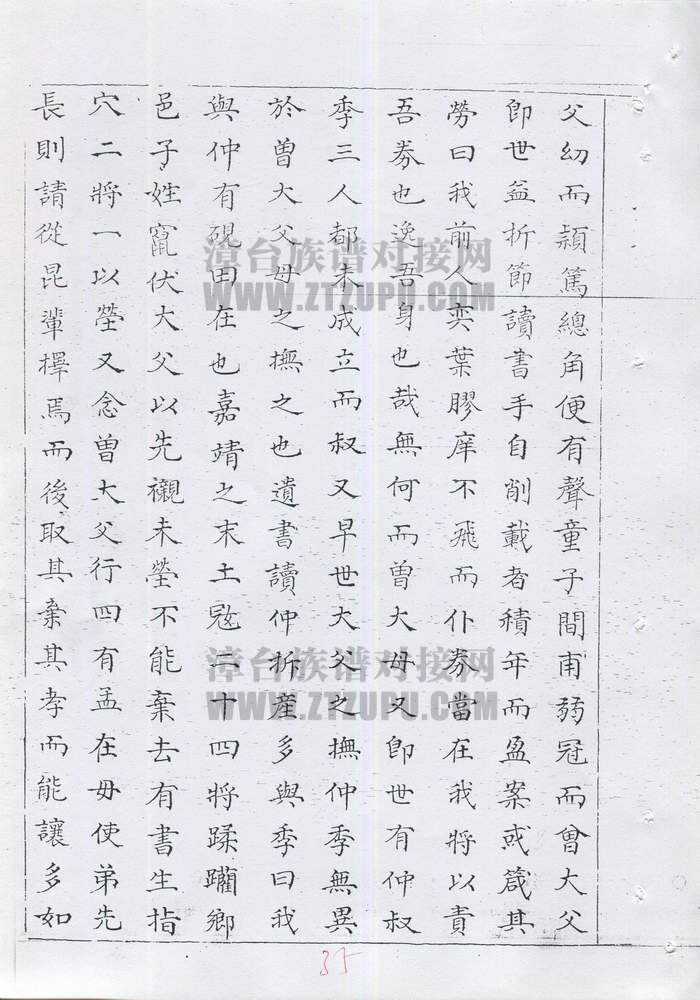 父幼而頴篤總角便有聲童子間甫弱冠而曾大父
即世益折節讀書手自削載者積年而盈案或箴其
勞曰我前人奕葉膠庠不飛而仆券當在我將以責
吾券也逸吾身也哉無何而曾大母又即世有仲叔
季三人都未成立而叔又早世大父之撫仲季無異
於曾大父母之撫之也遺書讀仲拆產多與季曰我
與仲有硯田在也嘉靖之末土寇二十四將蹂躪鄉
邑子姓竄伏大父以先櫬未塋不能棄去有書生指
穴二將一以塋又念曾大父行四有孟在毋使弟先
長則請從昆輩擇焉而後取其棄其孝而能讓多如
漳台族谱对接网
WWW.ZTZUPU.COM
漳台族谱对接网
WWW.ZTZUPU.COM
35